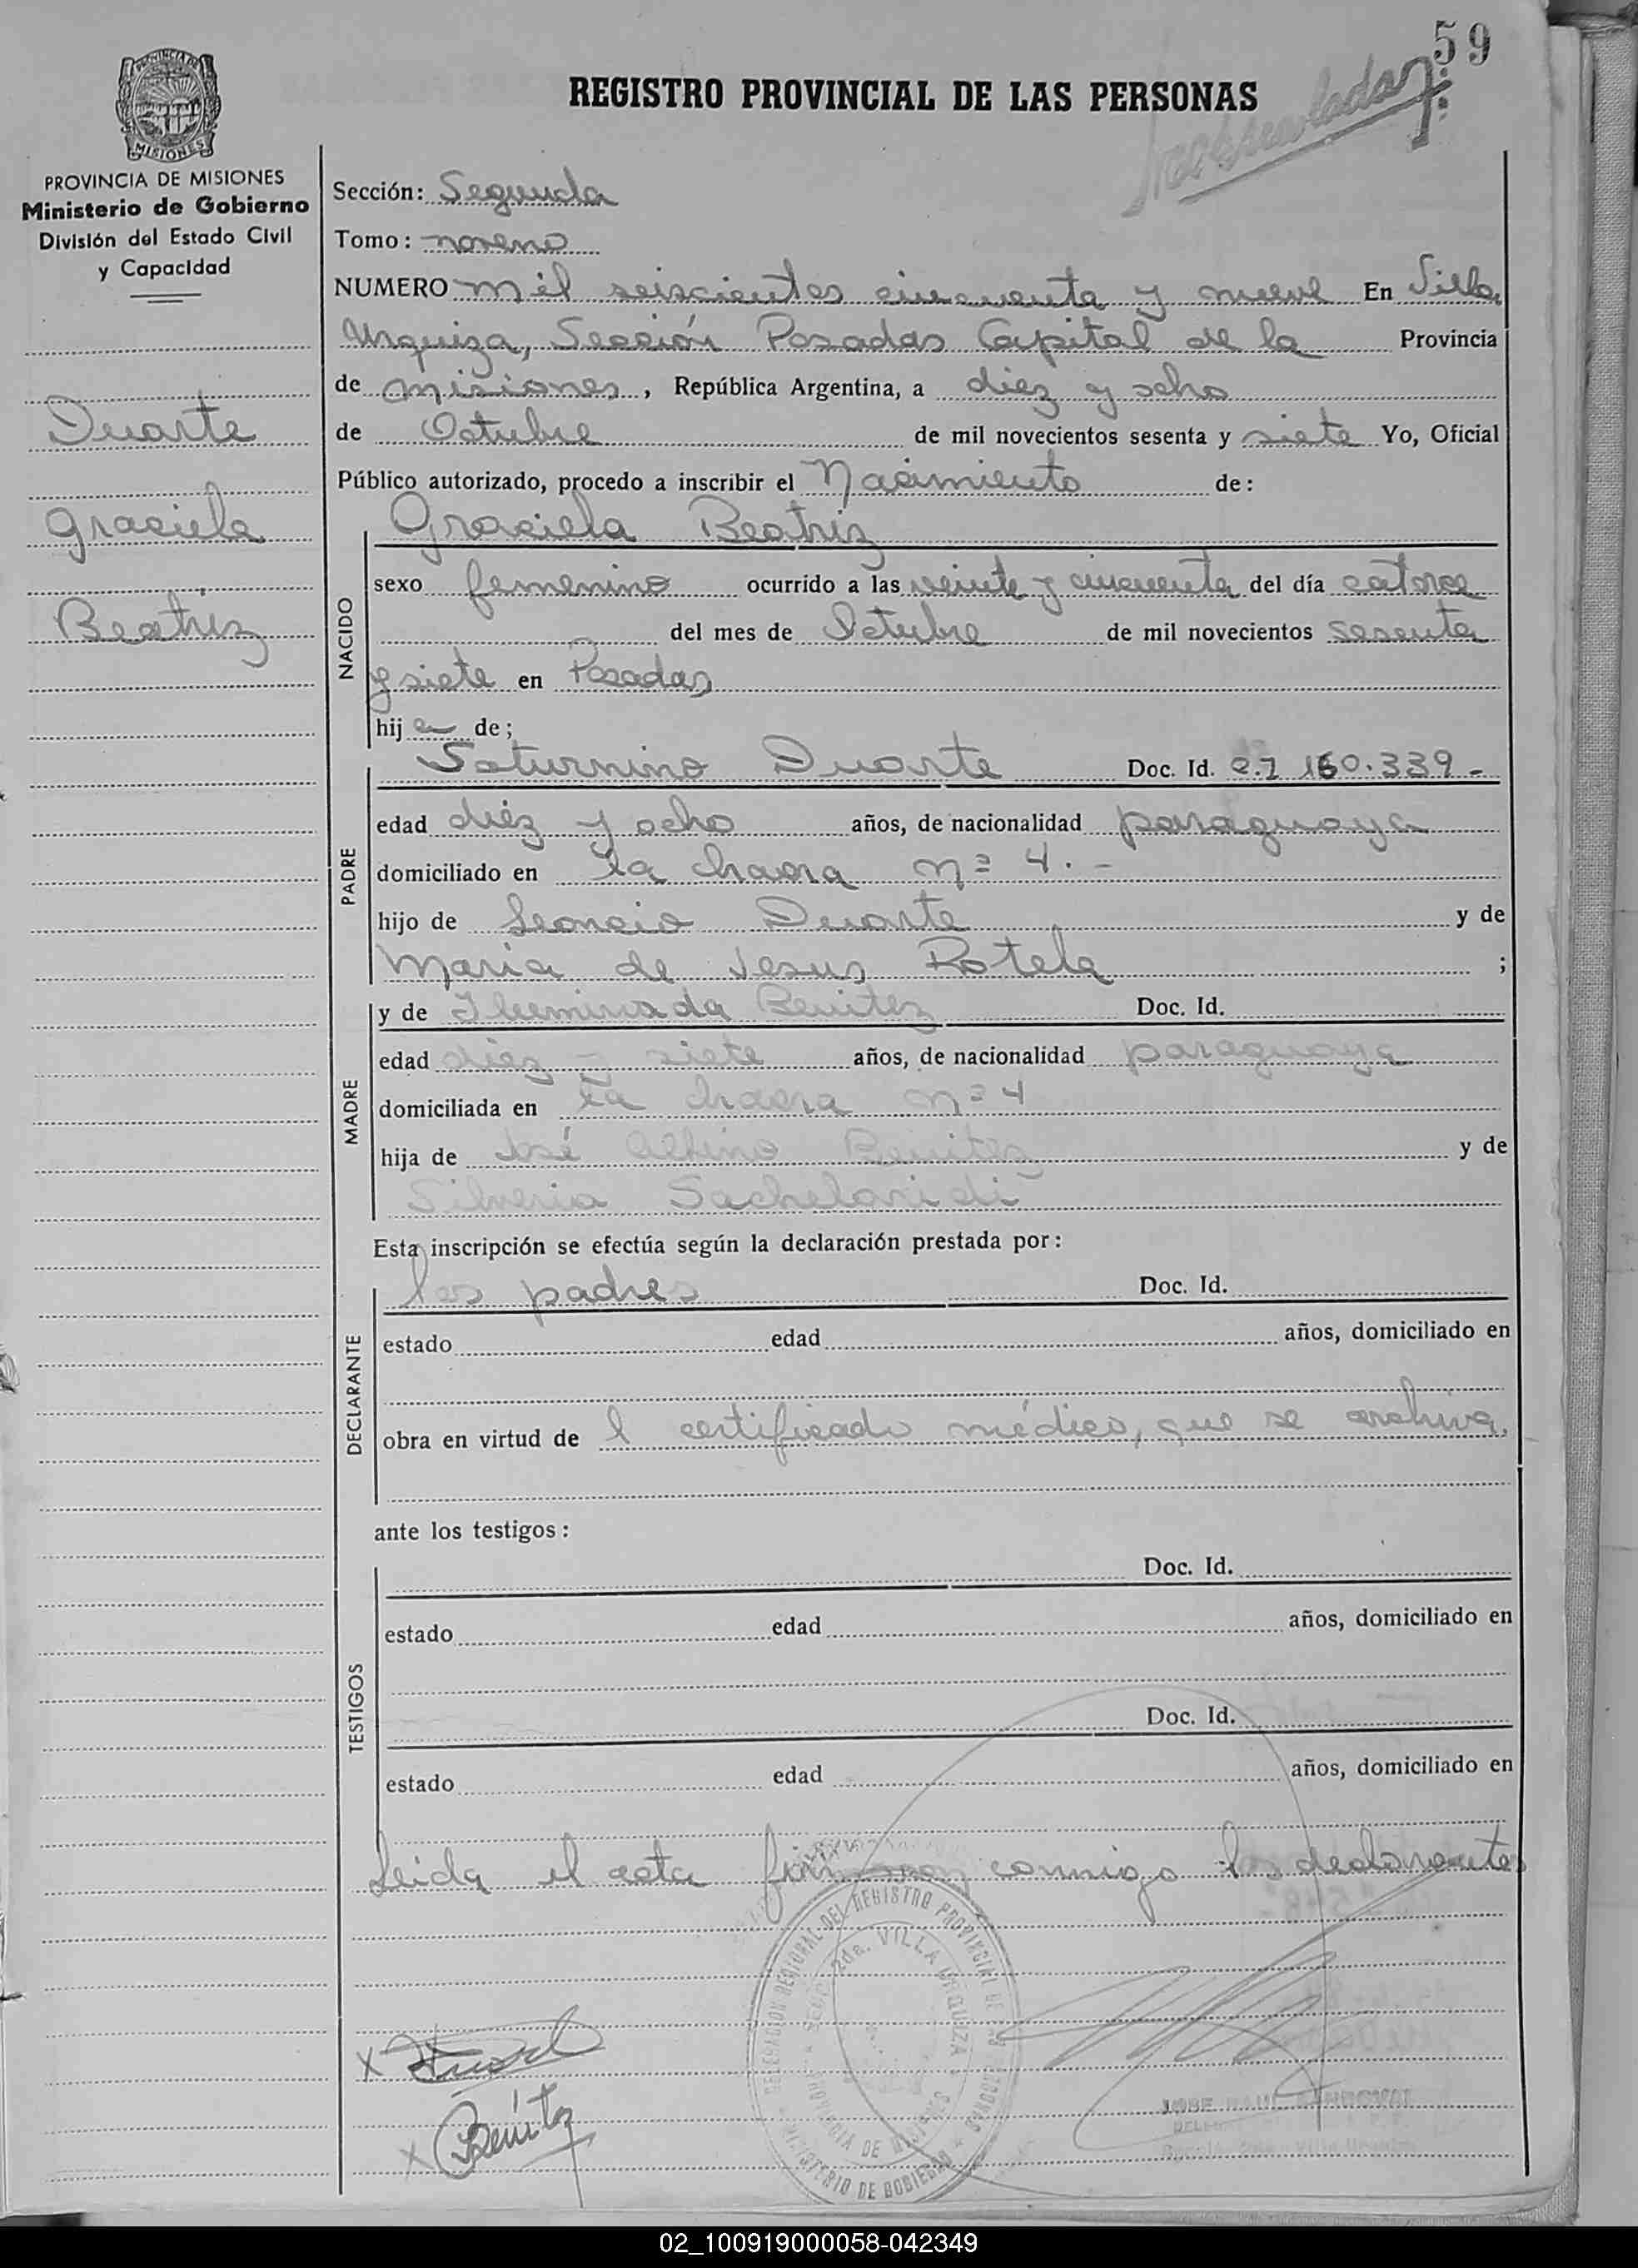 59
REGISTRO PROVINCIAL DE LAS PERSONAS
MISIONES
PROVINCIA DE MISIONES
Ministerio de Gobierno
División del Estado Civil
y Capacidad
Duarte
Graciela
Beatriz
Sección: Segunda
Tomo: noveno
NUMERO mil seiscientos cincuenta y nueve En Villa
Urquiza, Sección Posadas Capital de la Provincia
de Misiones, República Argentina, a diez y ocho
de Octubre de mil novecientos sesenta y siete Yo, Oficial
Público autorizado, procedo a inscribir el Nacimiento de:
NACIDO
Graciela Beatriz
sexo femenino ocurrido a las veinte y cincuenta del día catorce
del mes de Octubre de mil novecientos sesenta
y siete en Posadas
hija de;
PADRE
Saturnino Duarte Doc. Id. 160.339-
edad diez y ocho años, de nacionalidad paraguaya
domiciliado en la chacra nº 4.-
hijo de Leoncio Duarte y de
Maria de Jesus Rotela ;
MADRE
y de Iluminada Benitez Doc. Id.
edad diez y siete años, de nacionalidad paraguaya
domiciliada en la chacra nº 4
hija de José Albino Benitez y de
Silveria
Esta inscripción se efectúa según la declaración prestada por:
DECLARANTE
los padres Doc. Id.
estado edad años, domiciliado en
obra en virtud de l certificado médico, que se archiva.
ante los testigos:
TESTIGOS
Doc. Id.
estado edad años, domiciliado en
Doc. Id.
estado edad años, domiciliado en
Leida el acta firman conmigo los declarantes
DELEGACION REGIONAL DEL REGISTRO PROVINCIAL DE LAS PERSONAS
SECC. 2da. VILLA URQUIZA
PROVINCIA DE MISIONES
MINISTERIO DE GOBIERNO
Benitez
02_100919000058-042349